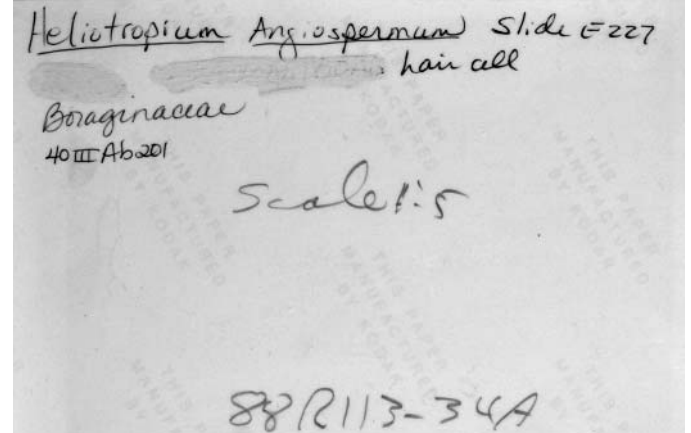 Heliotropium Angiospermum Slide E227
hair cell
Boraginaceae
40 III Ab201
Scale 1:5
THIS PAPER
MANUFACTURED
BY KODAK
88R113-34A